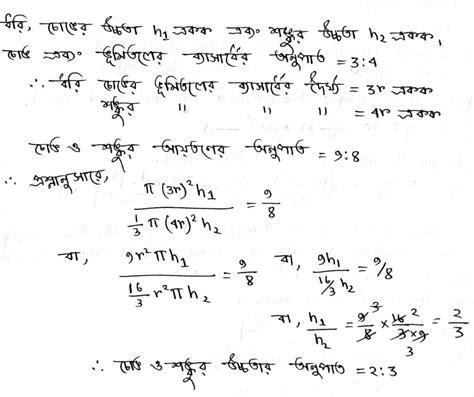 ধরি, চোঙের উচ্চতা h₁ একক এবং শঙ্কুর উচ্চতা h₂ একক,
চোঙ এবং ভূমিতলের ব্যাসার্ধের অনুপাত = 3:4
∴ ধরি চোঙের ভূমিতলের ব্যাসার্ধের দৈর্ঘ্য = 3r একক
শঙ্কুর " " " = 4r একক
চোঙ ও শঙ্কুর আয়তনের অনুপাত = 9:8
∴ প্রশ্নানুসারে,
π(3r)²h₁ / ⅓π(4r)²h₂ = 9/8
বা, 9r²πh₁ / (16/3)r²πh₂ = 9/8 বা, 9h₁ / (16/3)h₂ = 9/8
বা, h₁/h₂ = 9/8 × 16/(3×9) = 2/3
∴ চোঙ ও শঙ্কুর উচ্চতার অনুপাত = 2:3